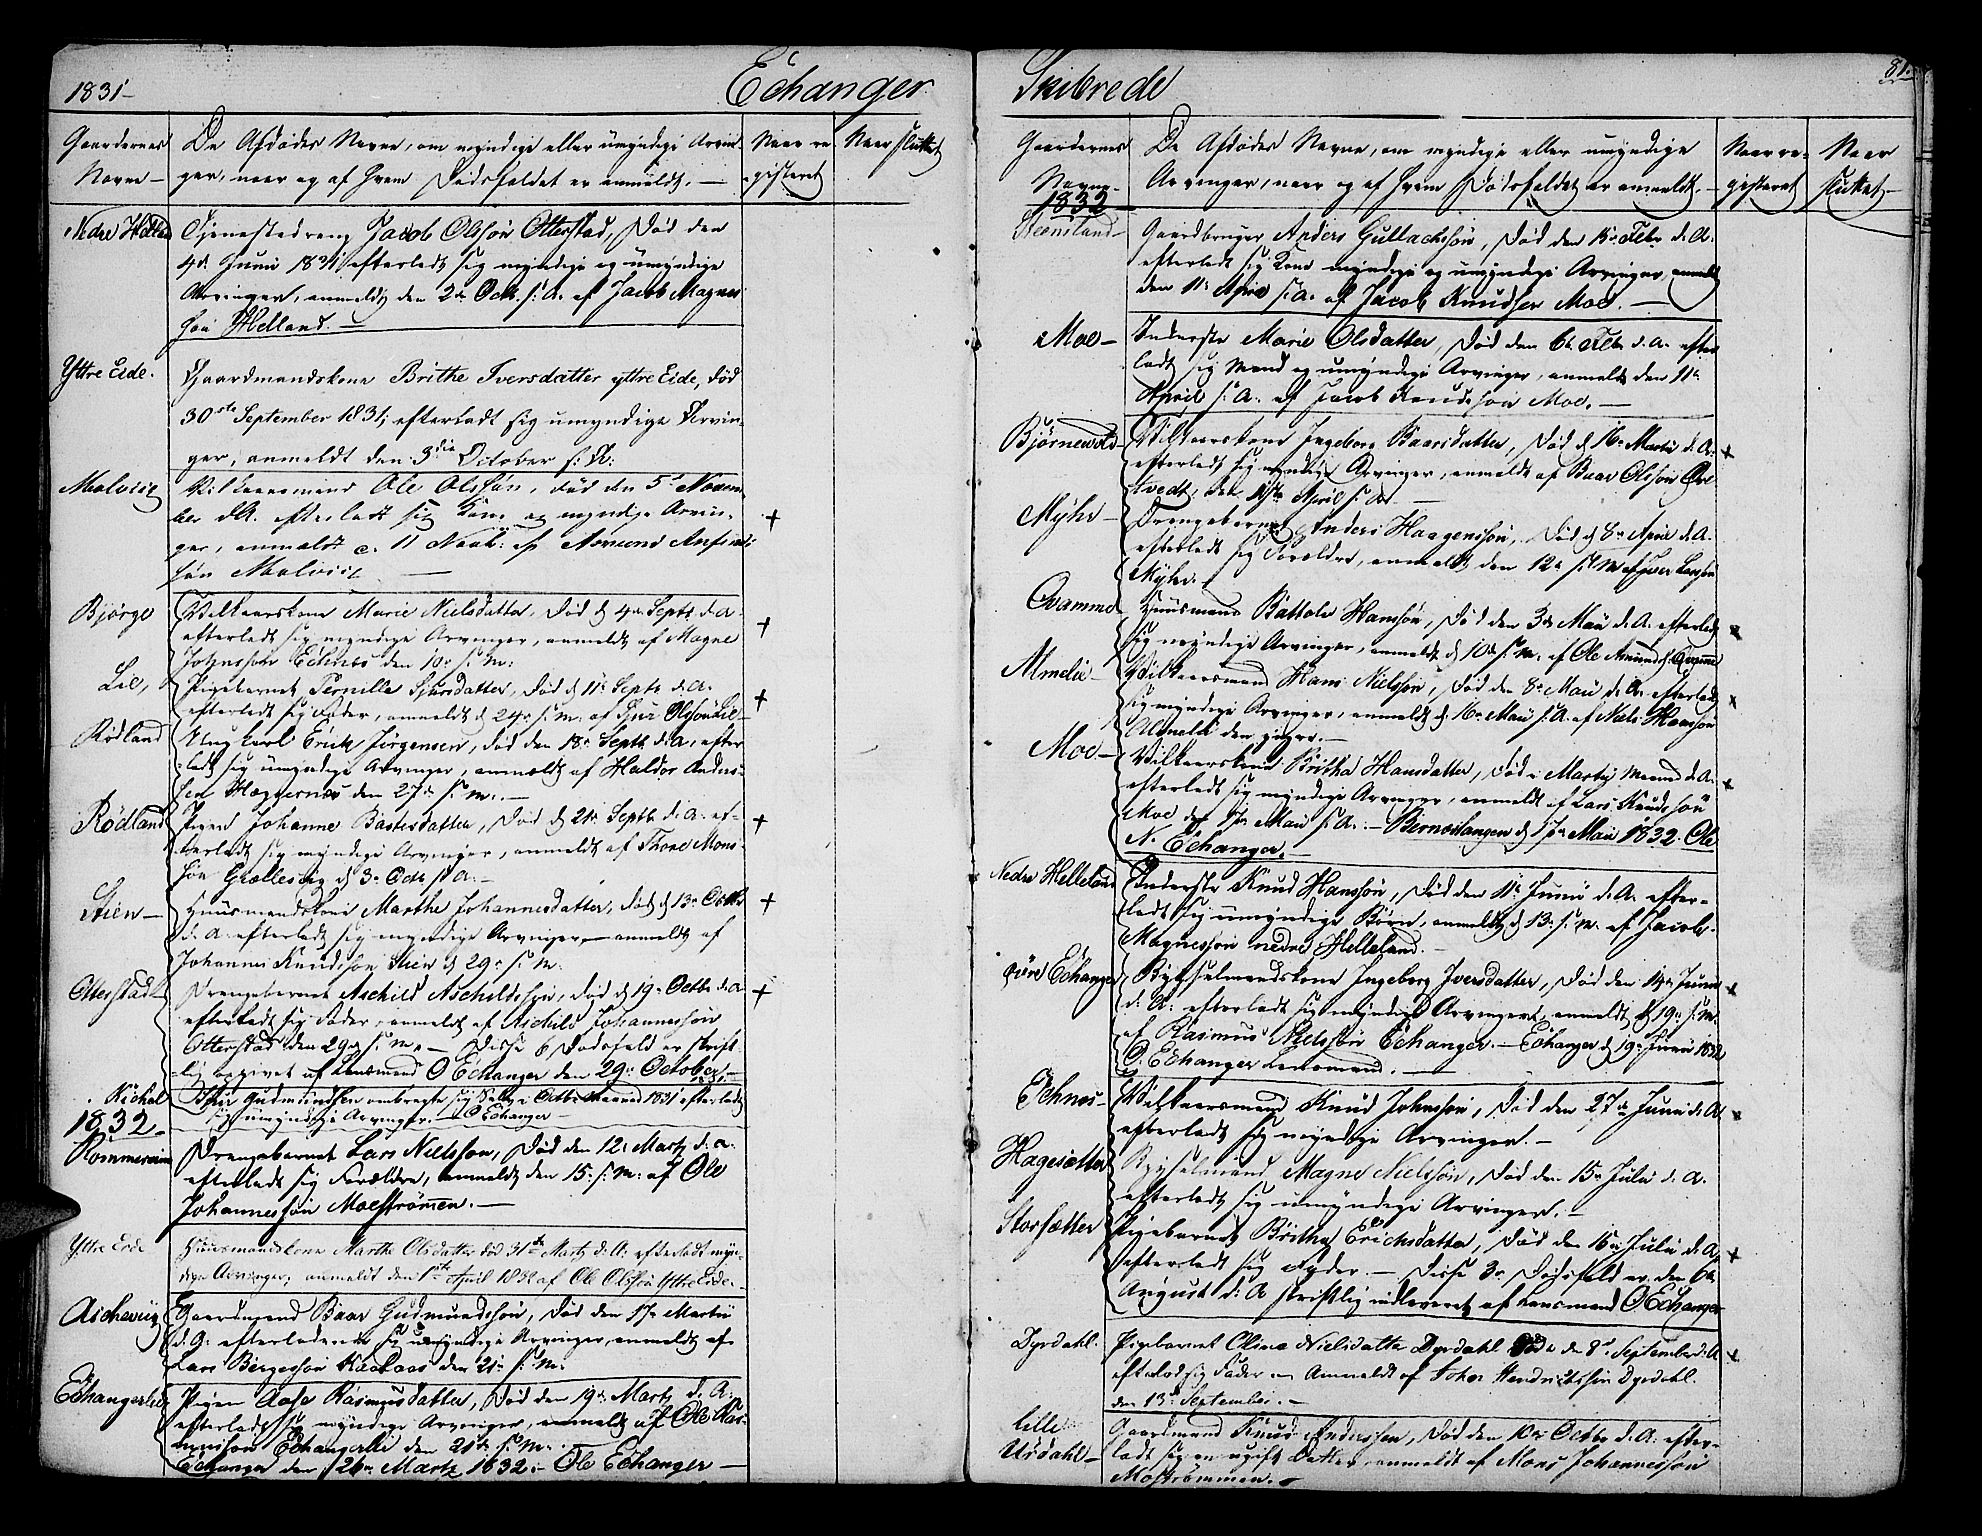 1831
Echanger
Gaardernes
Navne
De Afdödes Navne, om myndige eller umyndige Arvin-
ger, naar og af hvem Dödsfaldet er anmeldt.
Naar re
gisteret
Naar sluttet
Nedre Helland
Tjenestedreng Jacob Olsön Otterstad, Död den
4de Junii 1831 efterladt sig myndige og umyndige
Arvinger, anmeldt den 2de Octb. s. A. af Jacob Magnes
sön Helland.
Yttre Eide.
Gaardmandskone Brithe Iversdatter yttre Eide, död
30ste September 1831, efterladt sig umyndige Arvin-
ger, anmeldt den 3die October s: A:
Malvisig
Vilkaarsmand Ole Olssön, död den 5t Novem-
ber d.A. efterladt sig Kone og myndige Arvin-
ger, anmeldt 11 Novb: af Asmund Anfinds
sön Malvisig
+
Bjørge
Vilkaarskone Marie Nielsdatter, Död d 4de Septb. d. A.
efterladt sig myndige Arvinger, anmeldt af Magne
Johnssön Echnes den 10de s. M.
+
Lie,
Pigebarnet Pernille Sjursdatter, Död d 11te Septb d. A.
efterladt sig Fader, anmeldt d 24de s. M. af Sjur Olssön Lie
+
Rödland
Ungkarl Erick Jörgensen, död den 18de Septb d. A, efter
ladt sig umyndige Arvinger, anmeldt af Haldor Anders-
sen Hæggernæs den 27de s. M.
Rödland
Pigen Johanne Bastesdatter, Död d 21de Septb d. A. ef-
terladt sig myndige Arvinger, anmeldt af Thore Mons-
sön d 3de Octb s. A.
+
Stien
Huusmandskone Marthe Johannesdatter, Död d 13de Octbr
d. A. efterladt sig myndige Arvinger, anmeldt af
Johannes Knudssön Stien d 29de s. M.
+
Otterstad
Drengebarnet Aschild Aschildssön, död d 19de Octbr d. A
efterladt sig Fader, anmeldt af Aschild Johannessön
Otterstad den 29de s. M. Disse 6 Dödsfald er skrift-
lig opgivet af Lensmand O Echanger den 29de October
+
Gudmundsen ombragte sig selv i Octbr Maaned 1831 efterladt
sig umyndige Arvinger. O Echanger
1832
Rommereim
Drengebarnet Lars Nielssön, Död den 12te Martz d. a.
efterladt sig Forældre, anmeldt den 15de s. M. af Ole
Johannessön Moeströmen.
Yttre Eide
Huusmandskone Marthe Olsdatter död 31te Martz d. A. efterladt myn-
dige Arvinger, anmeldt den 1ste April 1832 af Ole Olssön Yttre Eide
Aschevig
Gaardmand Baar Gudmundssön, Död den 17de Martii
d. A. efterladende sig umyndige Arvinger, anmeldt af
Lars Bergessön den 21de s. M.
Echangerlie
Pigen Aase Rasmusdatter, Död den 19de Martz d. A.
efterladt sig myndige Arvinger, anmeldt af Ole Ras-
mussön Echangerlie den 21de s. M.
Echanger den 26de Martz 1832. Ole Echanger
Skibrede
81.
Gaardernes
Navne
De Afdödes Navne, om myndige eller umyndige
Arvinger, naar og af hvem Dödsfaldet er anmeldt.
Naar re-
gisteret
Naar
sluttet
1832
Steensland
Gaardbruger Anders Gullachssön, Död den 15de Febr d. A.
efterladt sig Kone myndige og umyndige Arvinger, anmeldt
den 11te April s. A. af Jacob Knudsen Moe.
Moe
Inderste Marie Olsdatter, Död den 6te Febr. d. A. efter
ladt sig Mand og umyndige Arvinger, anmeldt den 11te
April s. A. af Jacob Knudssön Moe.
Bjørnevold
Vilkaarskone Ingeborg Baarsdatter, Död d 16de Martii d. A.
efterladt sig myndige Arvinger, anmeldt af Baar Olssön
tvedt, den April s. A.
+
Myhr
Drengebarnet Anders Haagenssön, Död d 8de April d. A.
efterladt sig Forældre, anmeldt den 12te s. M. af Iver Larssön
Myhr.
Qvamme
Huusmand Battole Hanssön, Död den 3de Maii d. A. efterladt
sig myndige Arvinger, anmeldt d 10de s. M. af Ole Qvamme
x
Almelie
Vilkaarsmand Hans Nielssön, Död den 8de Maii d. A. efterladt
sig myndige Arvinger, anmeldt d 16de Maii s. A. af Niels Hanssön
Almelie den yngre.
x
Moe
Vilkaarskone Britha Hansdatter, Död i Martij Maaned d. A.
efterladt sig myndige Arvinger, anmeldt af Lars Knudssön
Moe den 17de Maii s. A. Bernestangen d 17de Maii 1832. Ole
N. Echanger.
+
Nedre Helleland
Inderste Knud Hanssön, Död den 11te Junii d. A. efter-
ladt sig umyndige Börn, anmeldt d 13de s. M. af Jacob
Magnessön nedre Helleland.
Echanger
Bygselmandskone Ingeborg Iversdatter, Död den 14de Junii
d. A. efterladt sig myndige Arvinger, anmeldt d 19de s. M.
af Rasmus Nielssön Echanger. Echanger d 19de Junii 1832
O. Echanger Lensmand.
+
Echnes
Vilkaarsmand Knud Johnssön, Död den 27de Junii d. A
efterladt sig myndige Arvinger.
+
Hagesætter
Bygselmand Magne Nielssön, Död den 15de Julii d. A.
efterladt sig umyndige Arvinger.
Storsætter
Pigebarnet Britha Erichsdatter, Död den 16de Julii d. A
efterladt sig Fader. Disse 3de Dödsfald er den 6te
August d. A skriftlig indleveret af Lensmand O Echanger
+
Dyrdahl.
Pigebarnet Oline Nielsdatter Dyrdahl döde den 8de September d. A
efterlod sig Fader Anmeldt af Johan Hendrichssön Dyrdahl.
den 13de September.
+
Lille
Ursdahl
Gaardmand Knud Anderssen, Död den 10de Octbr d. A. efter-
ladt sig en ugift Datter, anmeldt af Mons Johannessön
Moströmmen.